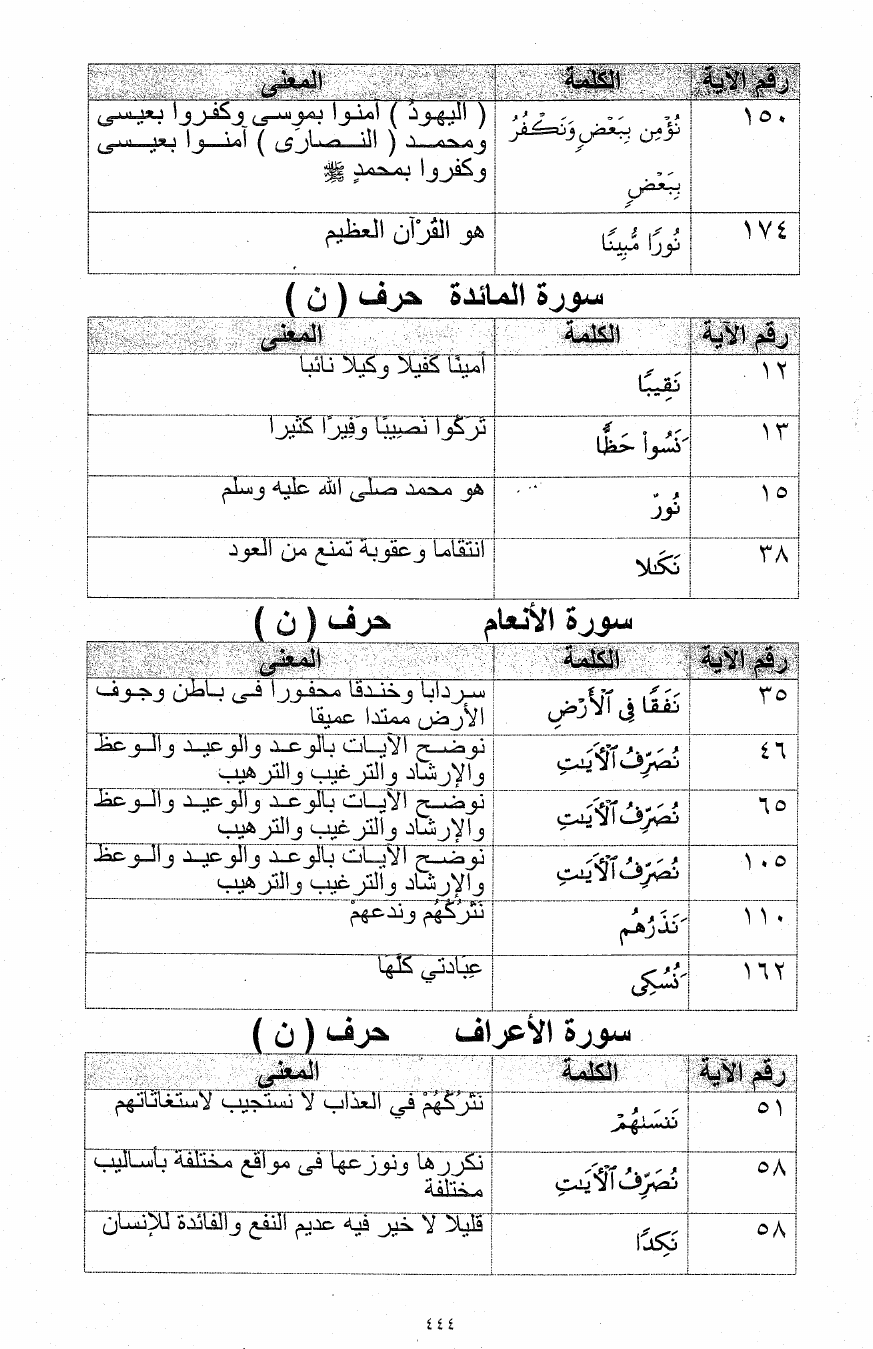 رقم الآية الكلمة المعنى
١٥٠ نُؤْمِن بِبَعْضٍ وَنَكْفُرُ ( اليهودُ ) آمنوا بموسى وكفروا بعيسى
ومحمد ( النصارى ) آمنوا بعيسى
بِبَعْضٍ وكفروا بمحمدٍ ﷺ
١٧٤ نُورًا مُّبِينًا هو القُرْآن العظيم
سورة المائدة حرف ( ن )
رقم الآية الكلمة المعنى
١٢ نَقِيبًا أمينًا كفيلا وكيلا نائبا
١٣ نَسُواْ حَظًّا تركُوا نصِيبًا وفِيرًا كثيرا
١٥ نُورٌ هو محمد صلى الله عليه وسلم
٣٨ نَكَٰلا انتقاما وعقوبة تمنع من العود
سورة الأنعام حرف ( ن )
رقم الآية الكلمة المعنى
٣٥ نَفَقًا فِى ٱلْأَرْضِ سردابا وخندقا محفورا فى باطن وجوف
الأرض ممتدا عميقا
٤٦ نُصَرِّفُ ٱلْأَيَٰتِ نوضح الآيات بالوعد والوعيد والوعظ
والإرشاد والترغيب والترهيب
٦٥ نُصَرِّفُ ٱلْأَيَٰتِ نوضح الآيات بالوعد والوعيد والوعظ
والإرشاد والترغيب والترهيب
١٠٥ نُصَرِّفُ ٱلْأَيَٰتِ نوضح الآيات بالوعد والوعيد والوعظ
والإرشاد والترغيب والترهيب
١١٠ نَذَرُهُم نَتْرُكُهُم وندعهمْ
١٦٢ نُسُكِى عِبَادتي كلَّهَا
سورة الأعراف حرف ( ن )
رقم الآية الكلمة المعنى
٥١ نَنسَىٰهُمْ نَتْرُكُهُمْ في العذاب لا نستجيب لاستغاثاتهم
٥٨ نُصَرِّفُ ٱلْأَيَٰتِ نكررها ونوزعها فى مواقع مختلفة بأساليب
مختلفة
٥٨ نَكِدًا قليلا لا خير فيه عديم النفع والفائدة للإنسان
٤٤٤